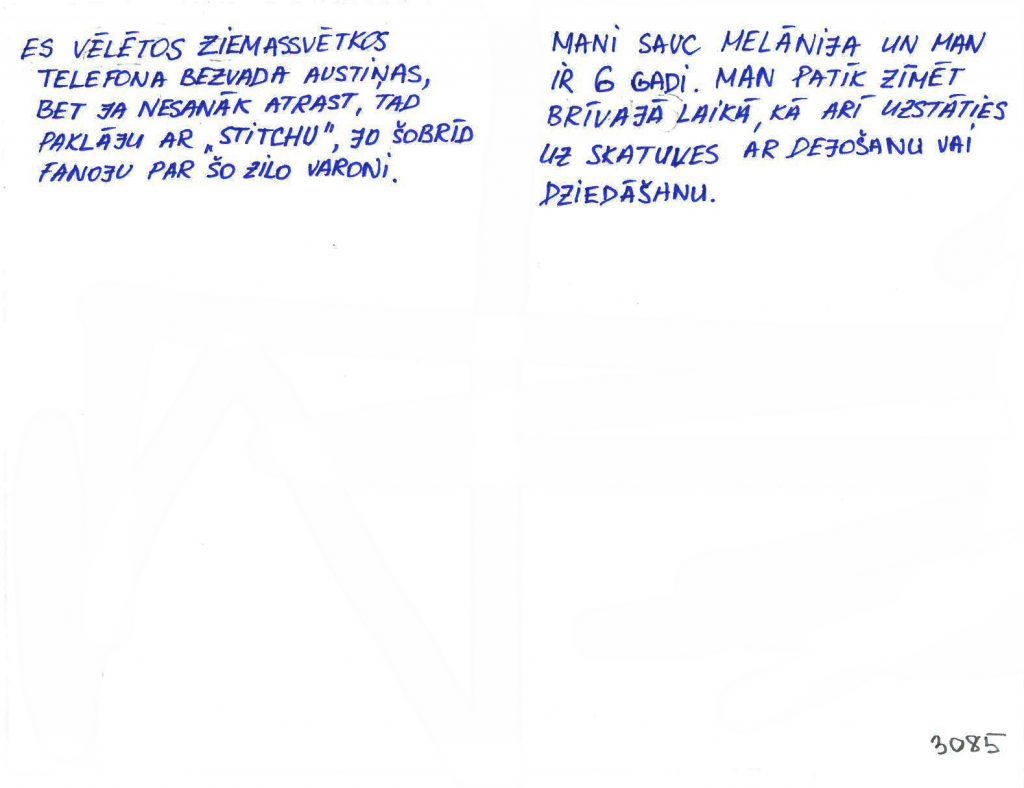 ES VĒLĒTOS ZIEMASSVĒTKOS
TELEFONA BEZVADA AUSTIŅAS,
BET JA NESANĀK ATRAST, TAD
PAKLĀJU AR „STITCHU”, JO ŠOBRĪD
FANOJU PAR ŠO ZILO VARONI.
MANI SAUC MELĀNIJA UN MAN
IR 6 GADI. MAN PATĪK ZĪMĒT
BRĪVAJĀ LAIKĀ, KĀ ARĪ UZSTĀTIES
UZ SKATUVES AR DEJOŠANU VAI
DZIEDĀŠANU.
3085